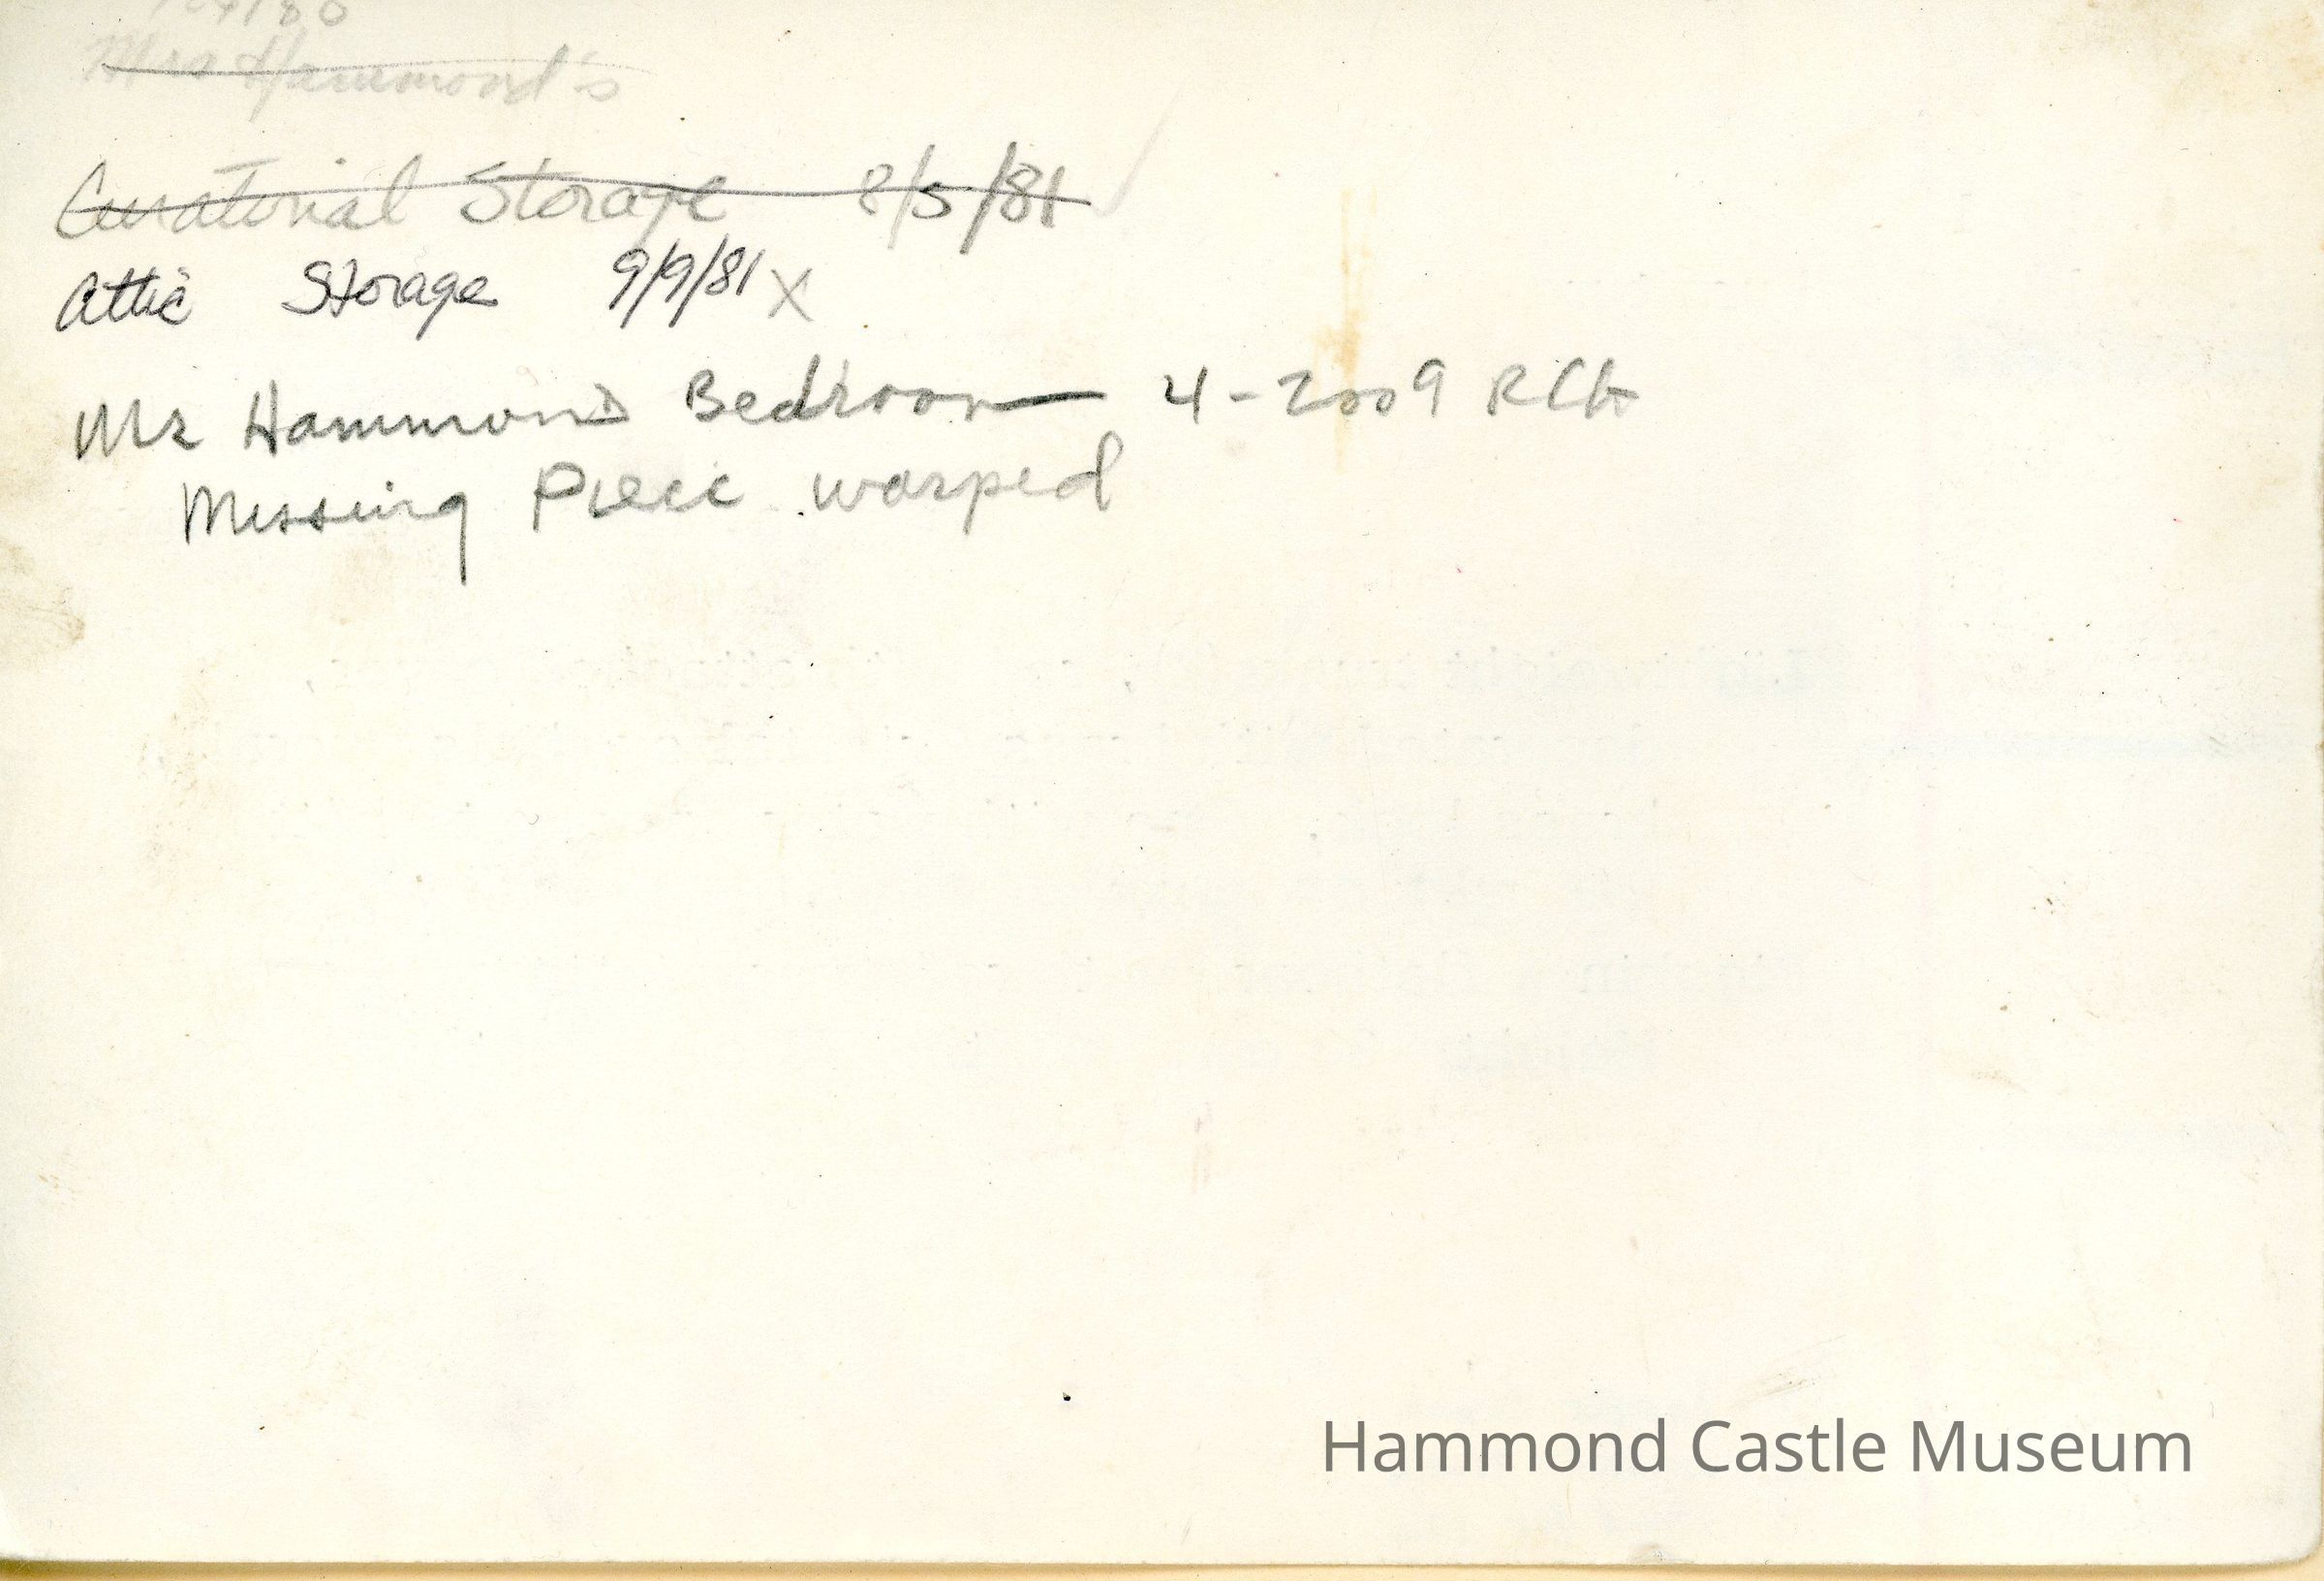 Mrs Hammond's
Curatorial Storage 8/5/81
Attic Storage 9/9/81 X
Mr Hammond Bedroom 4-2009 RCH
Missing Piece warped
Hammond Castle Museum